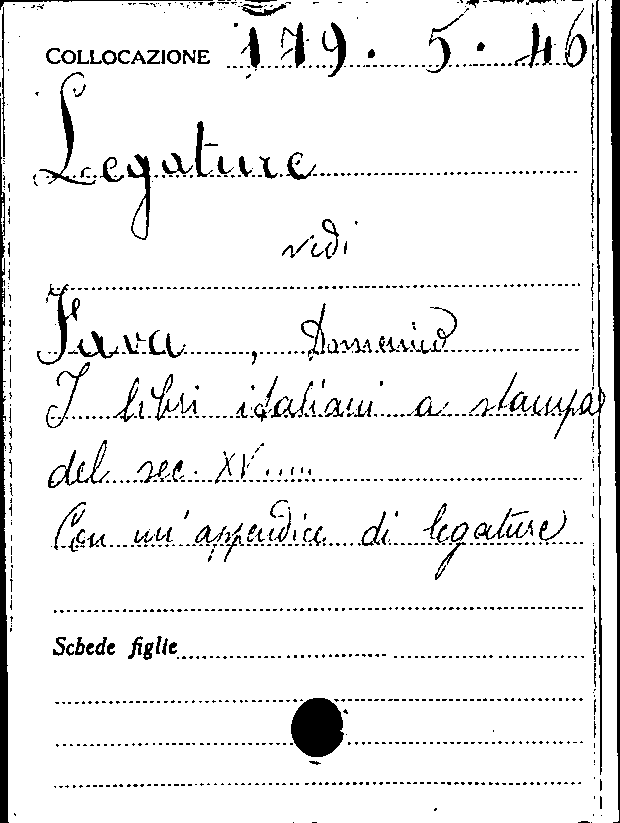 COLLOCAZIONE 179. 5. 46
Legature
vedi
Fava, Domenico
I libri italiani a stampa
del sec. XV.....
Con un' appendice di legature
Schede figlie